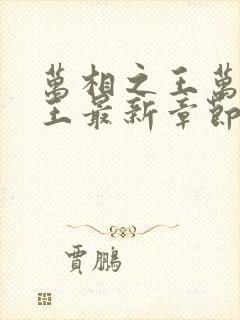 萬相之王萬
王最新章節
賈鵬